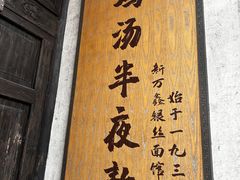 始于一九三
新万鑫银丝面馆
汤半夜新